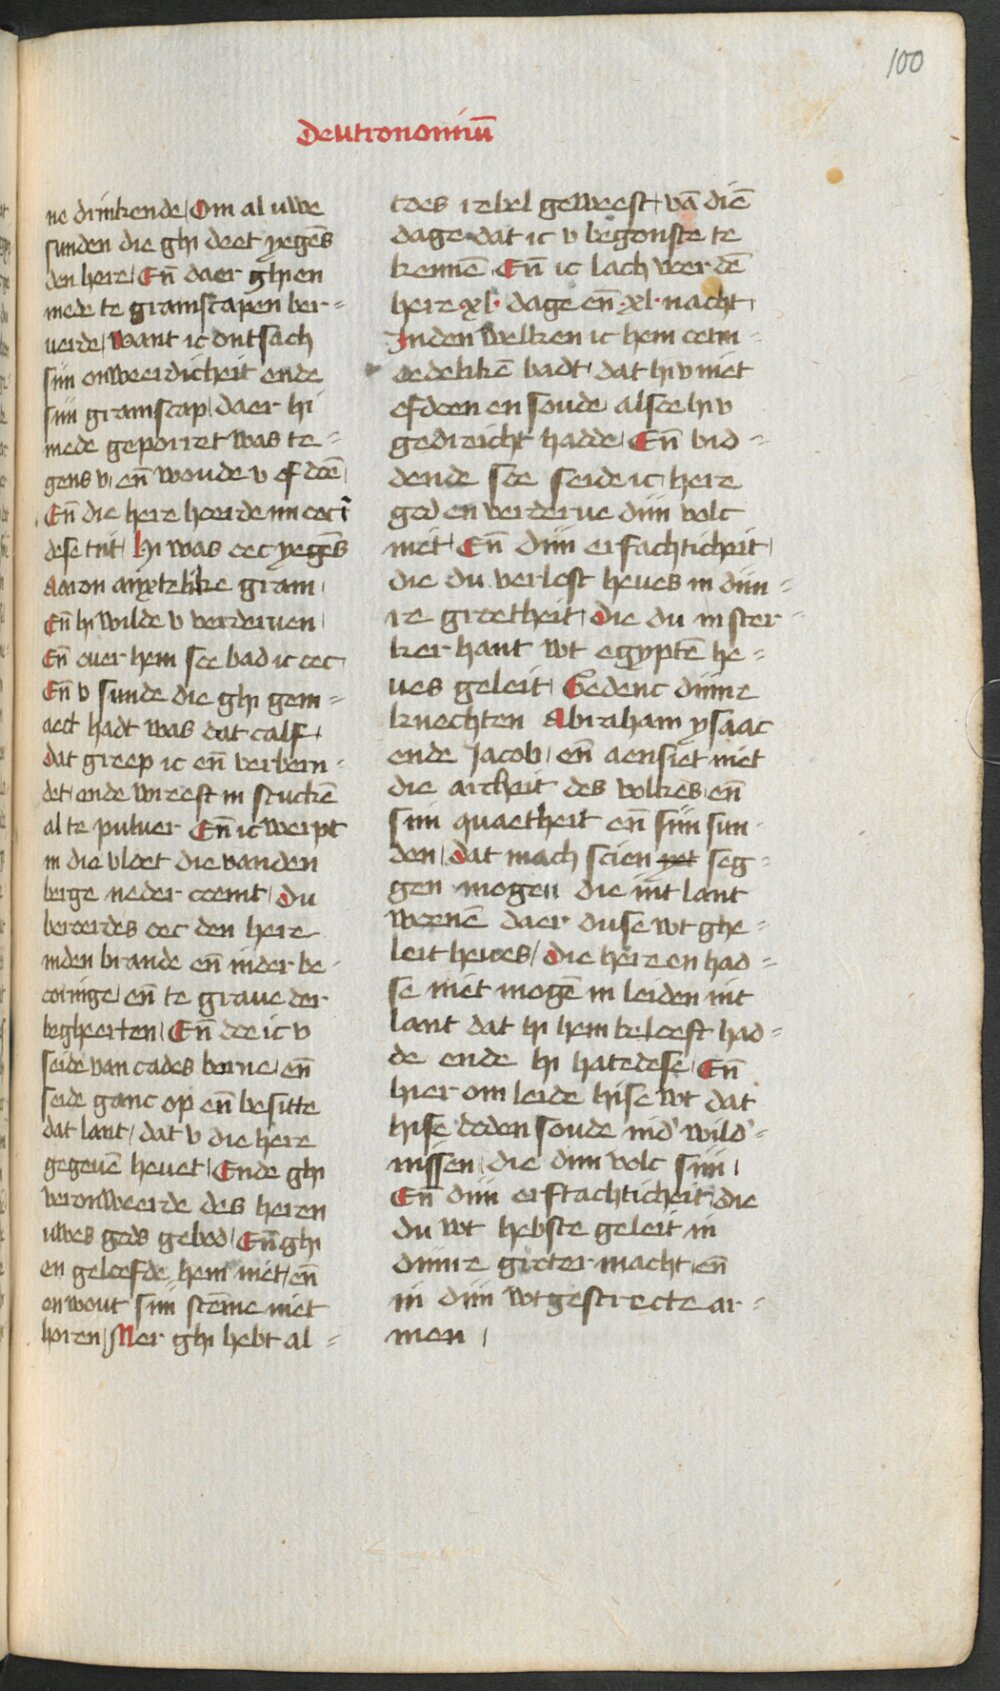 100
Deutronomiū
ne drinkende Om al uwe
sunden die ghi deet yegēs
den here Eñ daer ghi en
mede te gramscapen ber=
uerde want ic ontsach
sijn onweerdicheit ende
sijn gramscap daer hi
mede geporret was te=
gens v eñ woude v ofdoē
Eñ die here hoerde mi oec ī
dese tijt Hi was oec yegēs
Aaron anxtelike gram
Eñ hi wilde v verderuen
Eñ ouer hem soe bad ic oec
Eñ v sunde die ghi gem=
aect hadt was dat calf
dat greep ic eñ verbern=
det ende wreeft in stuckē
al te puluer Eñ ic werpt
in die vloet die vanden
berge neder coemt Du
beroerdes oec den here
inden brande eñ inder be=
coringe eñ te graue der
begheerten Eñ doe ic v
seide van cades borne eñ
seide ganc op eñ besitte
dat lant dat v die here
gegeuē heuet Ende ghi
veronweerde des heren
uwes gods gebod Eñ ghi
en geloefde hem niet eñ
en wout sijn stēme niet
horen Mer ghi hebt al=
toes rebel geweest vā diē
dage dat ic v begonste te
kennē Eñ ic lach voer dē
here .xl. dage eñ .xl. nacht
Inden welken ic hem oetm=
oedelikē badt dat hi v niet
ofdoen en soude alsoe hi v
gedreicht hadde Eñ bid=
dende soe seide ic here
god en verderue dijn volc
niet Eñ dijn erfachticheit
die du verlost heues in dijn=
re groetheit die du in ster=
ker hant wt egyptē he=
ues geleit Gedenc dijnre
knechten Abraham ysaac
ende Jacob eñ aensiet niet
die archeit des volkes eñ
sijn quaetheit eñ sijn sun=
den dat mach scien seg=
gen mogen die int lant
woenē daer duse wt ghe=
leit heues die here en had=
se niet mogē in leiden int
lant dat hi hem beloeft had=
de ende hi hatedese Eñ
hier om leide hise wt dat
hise doden soude ind' wild'=
nissen die dijn volc sijn
Eñ dijn erftachticheit die
du wt hebste geleit in
dijnre groter macht eñ
in dijn wtgestrecte ar=
men